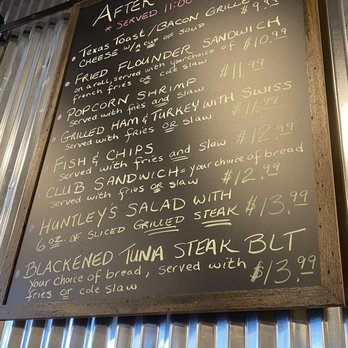 AFTER
* SERVED 11:00
Texas Toast/Bacon Grilled $9.99
CHEESE w/a cup of soup
FRIED FLOUNDER SANDWICH
on a roll, served with your choice of $10.99
french fries or cole slaw
POPCORN SHRIMP $11.99
served with fries and slaw
GRILLED HAM & TURKEY WITH SWISS
served with fries OR slaw $11.99
FISH & CHIPS $12.99
served with fries and slaw
CLUB SANDWICH - your choice of bread
served with fries or slaw $12.99
HUNTLEY'S SALAD WITH
6 oz. OF SLICED GRILLED STEAK $13.99
BLACKENED TUNA STEAK BLT
Your choice of bread, served with $13.99
fries or cole slaw